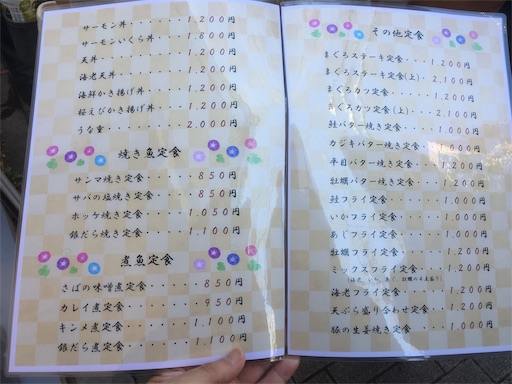 サーモン丼・・・・・1,200円
サーモンいくら丼・・・1,800円
天丼・・・・・・・1,200円
海老天丼・・・・・1,200円
海鮮かき揚げ丼・・・1,200円
桜えびかき揚げ丼・・1,200円
うな重・・・・・・2,000円
焼き魚定食
サンマ焼き定食・・・・850円
サバの塩焼き定食・・・850円
ホッケ焼き定食・・・1,050円
銀だら焼き定食・・・1,100円
煮魚定食
さばの味噌煮定食・・・850円
カレイ煮定食・・・・950円
キンメ煮定食・・・・1,100円
銀だら煮定食・・・・1,100円
その他定食
まぐろステーキ定食・・・1,200円
まぐろステーキ定食(上)・2,100円
まぐろカツ定食・・・・1,200円
まぐろカツ定食(上)・・2,100円
鮭バター焼き定食・・・1,000円
カジキバター焼き定食・・1,200円
平目バター焼き定食・・・1,200円
牡蠣バター焼き定食・・・1,200円
鮭フライ定食・・・・1,000円
いかフライ定食・・・・1,000円
あじフライ定食・・・・1,000円
牡蠣フライ定食・・・・1,200円
ミックスフライ定食・・・1,200円
海老フライ定食・・・・1,200円
天ぷら盛り合わせ定食・・1,200円
豚の生姜焼き定食・・・1,000円